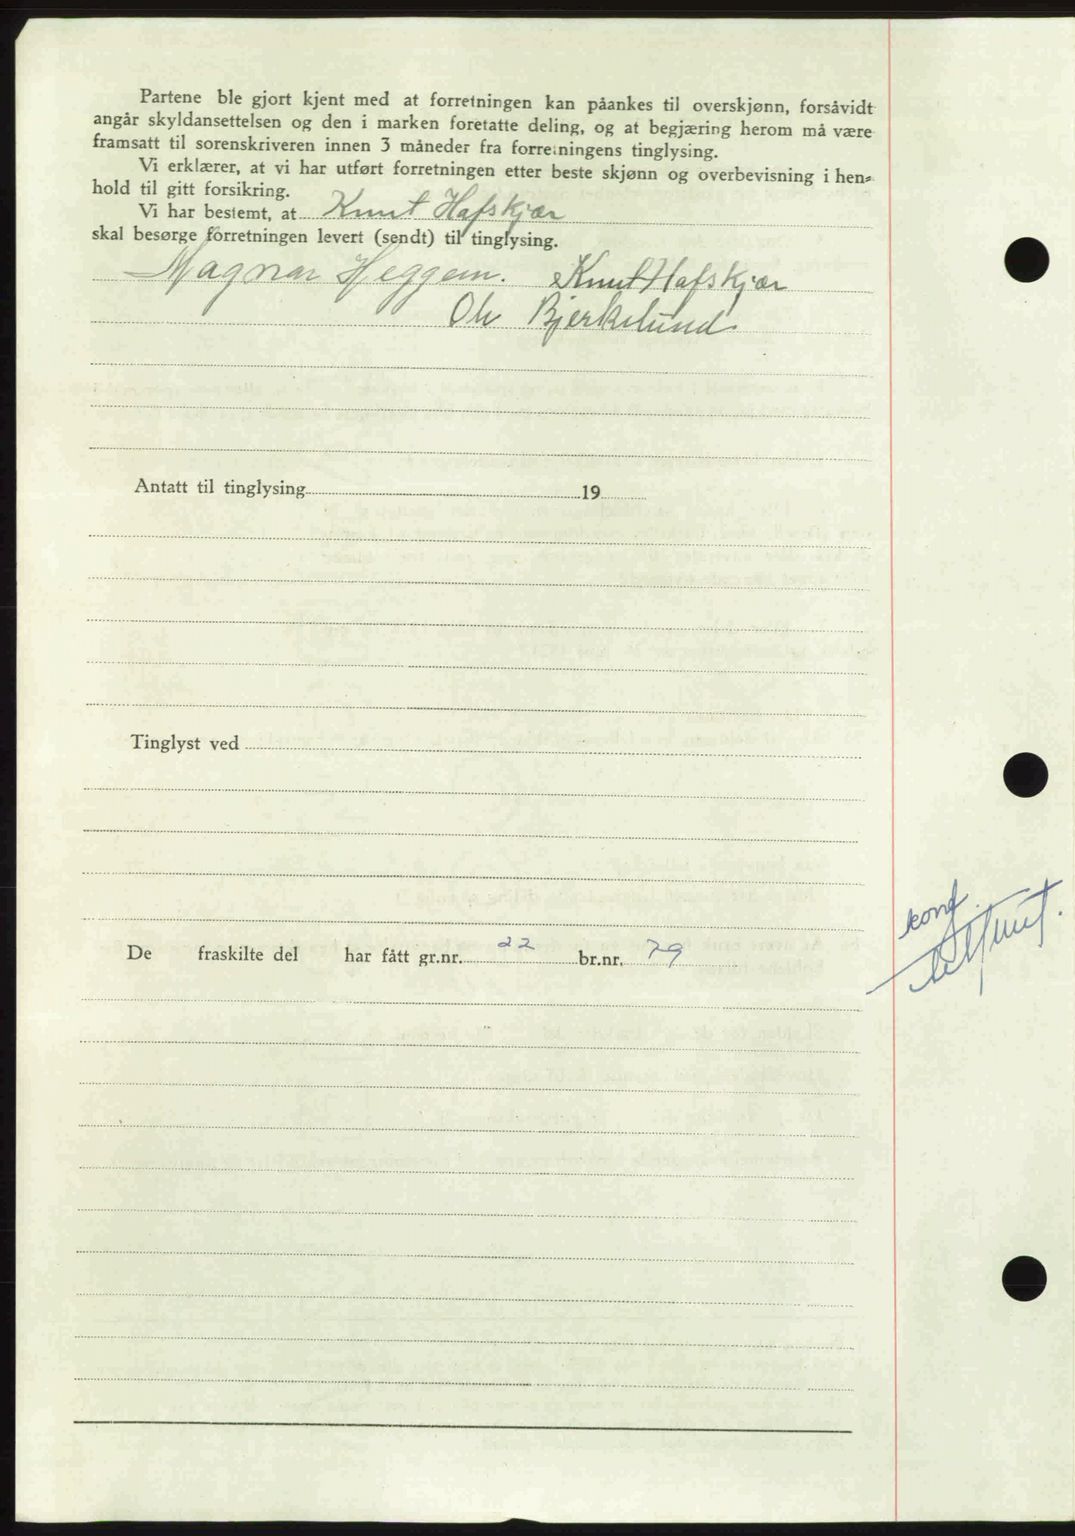 Partene ble gjort kjent med at forretningen kan påankes til overskjønn, forsåvidt
angår skyldansettelsen og den i marken foretatte deling, og at begjæring herom må være
framsatt til sorenskriveren innen 3 måneder fra forretningens tinglysing.
Vi erklærer, at vi har utført forretningen etter beste skjønn og overbevisning i hen=
hold til gitt forsikring.
Vi har bestemt, at Knut Hafskjær
skal besørge forretningen levert (sendt) til tinglysing.
Magnar Heggem. Knut Hafskjær
Ole Bjerkelund
Antatt til tinglysing 19
Tinglyst ved
De fraskilte del har fått gr.nr. 22 br.nr. 79
konf.